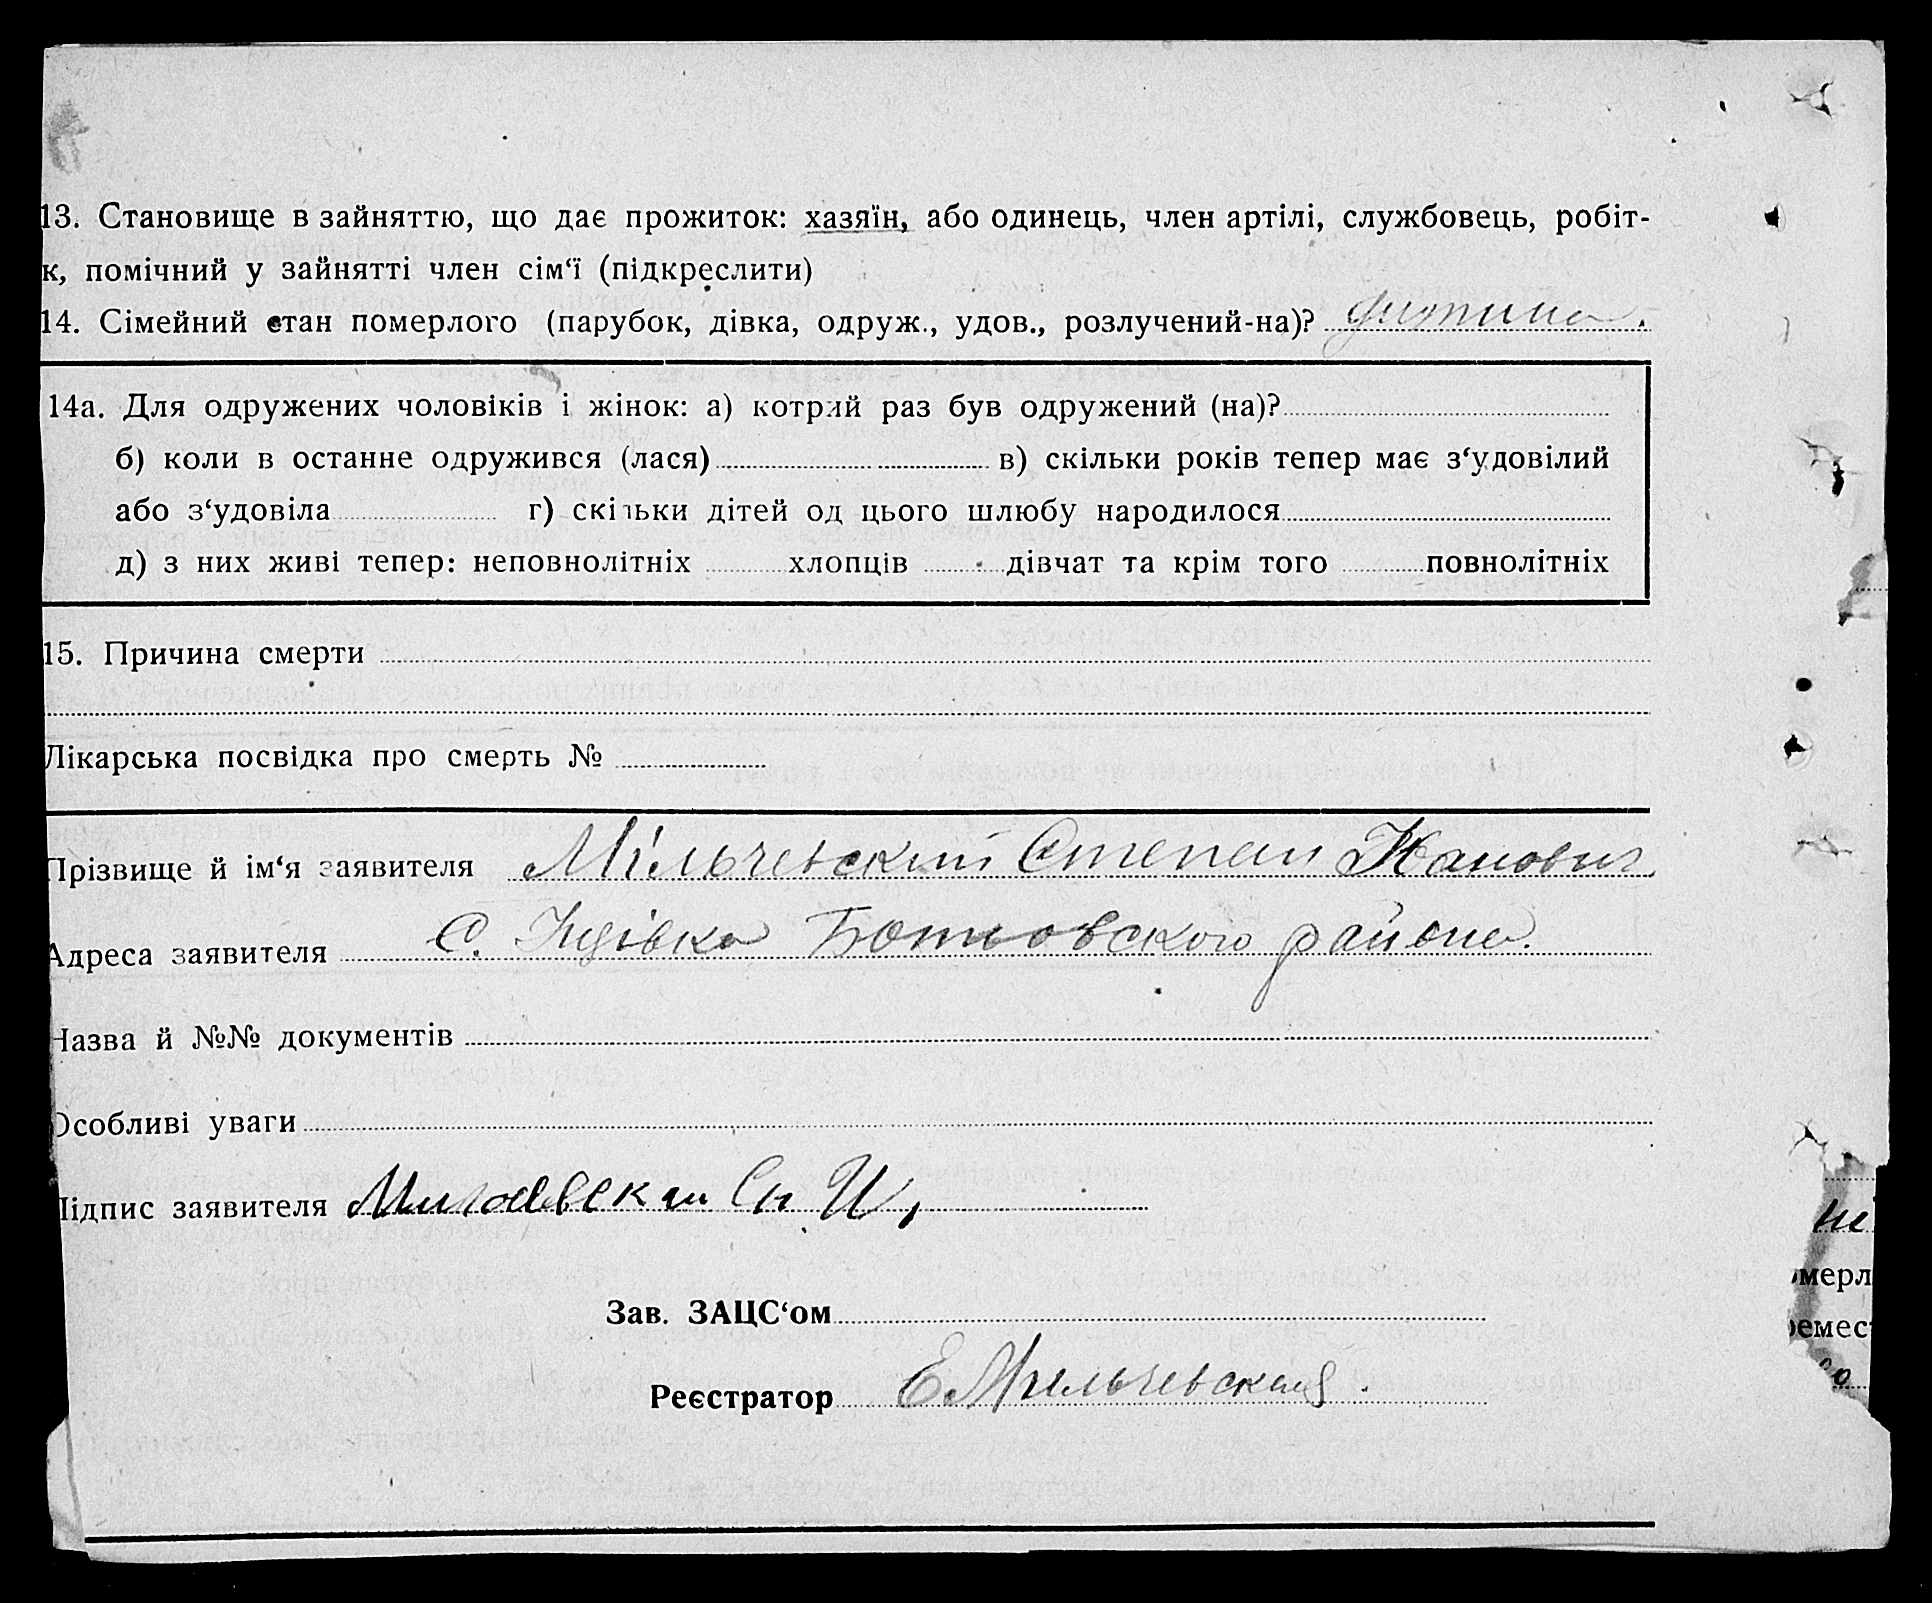 13. Становище в зайняттю, що дає прожиток: хазяїн, або одинець, член артілі, службовець, робіт-
к, помічний у зайнятті член сім‘ї (підкреслити)
14. Сімейний стан померлого (парубок, дівка, одруж., удов., розлучений-на)? дитина.
14а. Для одружених чоловіків і жінок: а) котрий раз був одружений (на)?
б) коли в останне одружився (лася) в) скільки років тепер має з‘удовілий
або з‘удовіла г) скільки дітей од цього шлюбу народилося
д) з них живі тепер: неповнолітніх хлопців дівчат та крім того повнолітніх
15. Причина смерти
Лікарська посвідка про смерть №
Прізвище й ім‘я заявителя Мільчевский Степан Иванович
Адреса заявителя С. района.
Назва й №№ документів
Особливі уваги
Підпис заявителя И,
не
мерл
емес
Зав. ЗАЦС‘ом
Реєстратор Е Мильчевский.